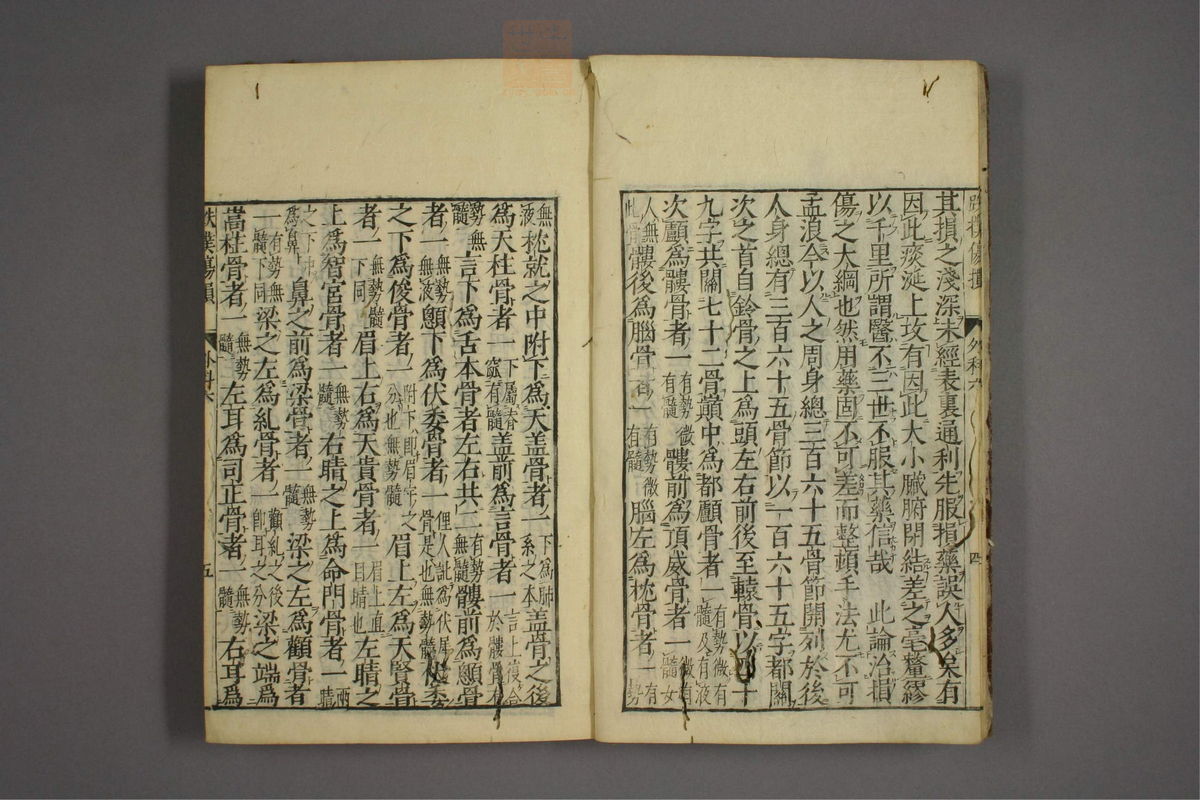 其損之淺深未經表裏通利先服損藥誤人多矣有
因此痰涎上攻有因此大小臟腑閉結差之毫釐繆
以千里所謂醫不三世不服其藥信哉 此論治損
傷之大綱也然用藥固不可差而整頓手法尤不可
孟浪今以人之周身總三百六十五骨節開列於後
人身總有三百六十五骨節以一百六十五字都關
次之首自鈴骨之上爲頭左右前後至轅骨以四十
九字共關七十二骨巔中爲都顱骨者一有勢微有髓及有液
次顱爲髏骨者一有勢微有髓 髏前爲頂威骨者一微有髓女
人無此骨髏後爲腦骨者一有勢微有髓 腦左爲枕骨者一有勢
無液枕就之中附下爲天盖骨者一下爲肺系之本盖骨之後
爲天柱骨者一下屬脊窳有髓盖前爲言骨者一言上復合於髏骨有
勢無髓言下爲舌本骨者左右共二有勢無髓髏前爲顖骨
者一無勢無液顖下爲伏委骨者一俚人訛爲伏犀骨是也無勢髓伏委
之下爲俊骨者一附下即眉宇之分也無勢髓眉上左爲天賢骨
者一無勢髓下同眉上右爲天貴骨者一眉上直目睛也左睛之
上爲智宮骨者一無勢髓右睛之上爲命門骨者一兩睛
之下中爲鼻鼻之前爲梁骨者一無勢髓梁之左爲顴骨者
一有勢無髓下同梁之左爲糺骨者一顴糺之後即耳之分梁之端爲
嵩柱骨者一無勢髓左耳爲司正骨者一無勢髓右耳爲